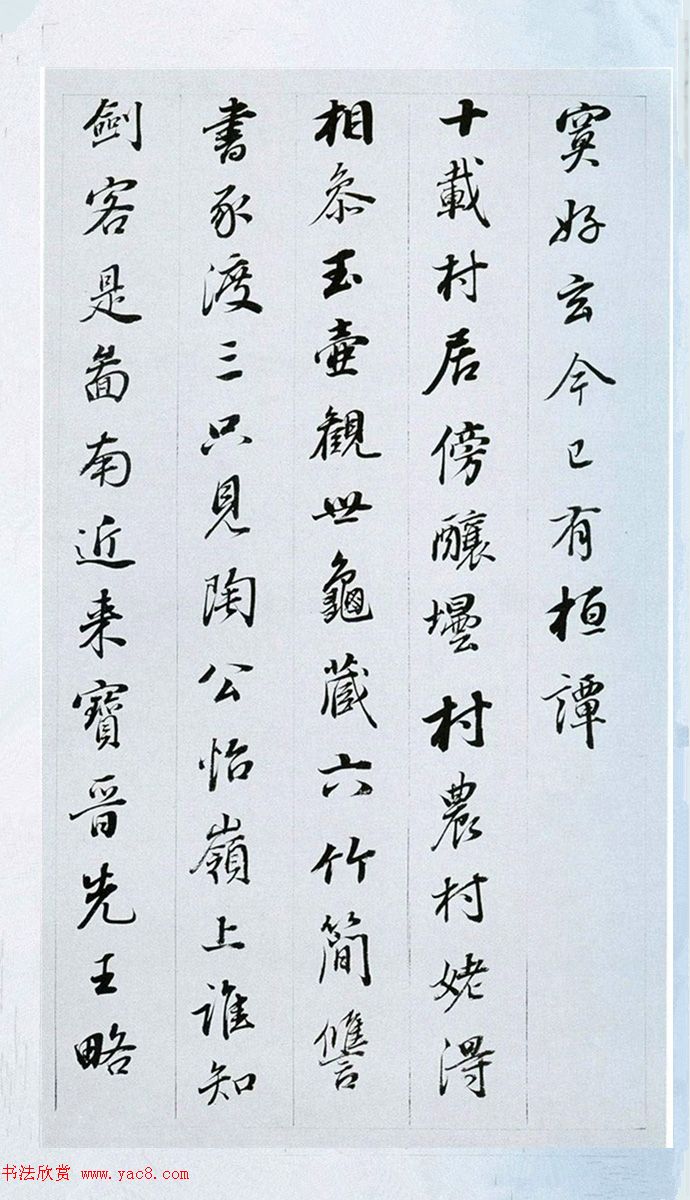 寞好玄今已有桓譚
十載村居傍釀壜村農村姥得
相叅玉壺觀世龜藏六竹簡讐
書豕渡三只見陶公怡嶺上誰知
劍客是啚南近来寶晋先王略
书法欣赏 www.yac8.com